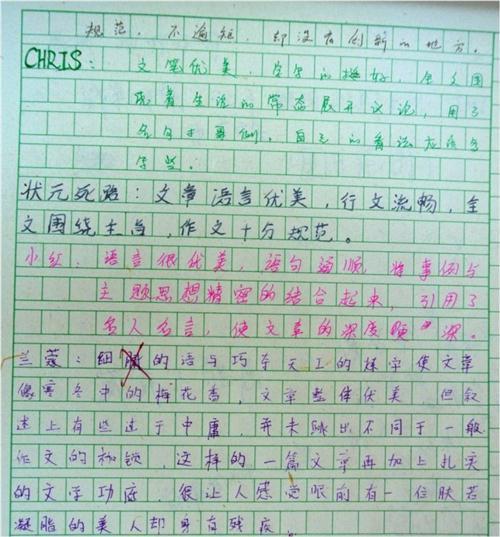 规范，不逾矩，却没有创新的地方。
CHRIS：文笔优美，字写的挺好，全文围
着生活的常态展开议论，用了
名句于事例，自己的看法应该多
写些。
状元死路：文章语言优美，行文流畅，全
文围绕主旨，作文十分规范。
小红：语言很优美，语句通顺，将事例与
主题思想精密的结合起来，引用了
名人名言，使文章的深度颇深。
兰蔻：细腻的语与巧夺天工的炼字使文章
像寒冬中的梅花香，文章整体优美，但叙
述上有些过于中庸，并未跳出不同于一般
作文的枷锁，这样的一篇文章再加上扎实
的文学功底，很让人感觉眼前有一位肤若
凝脂的美人却身有残疾